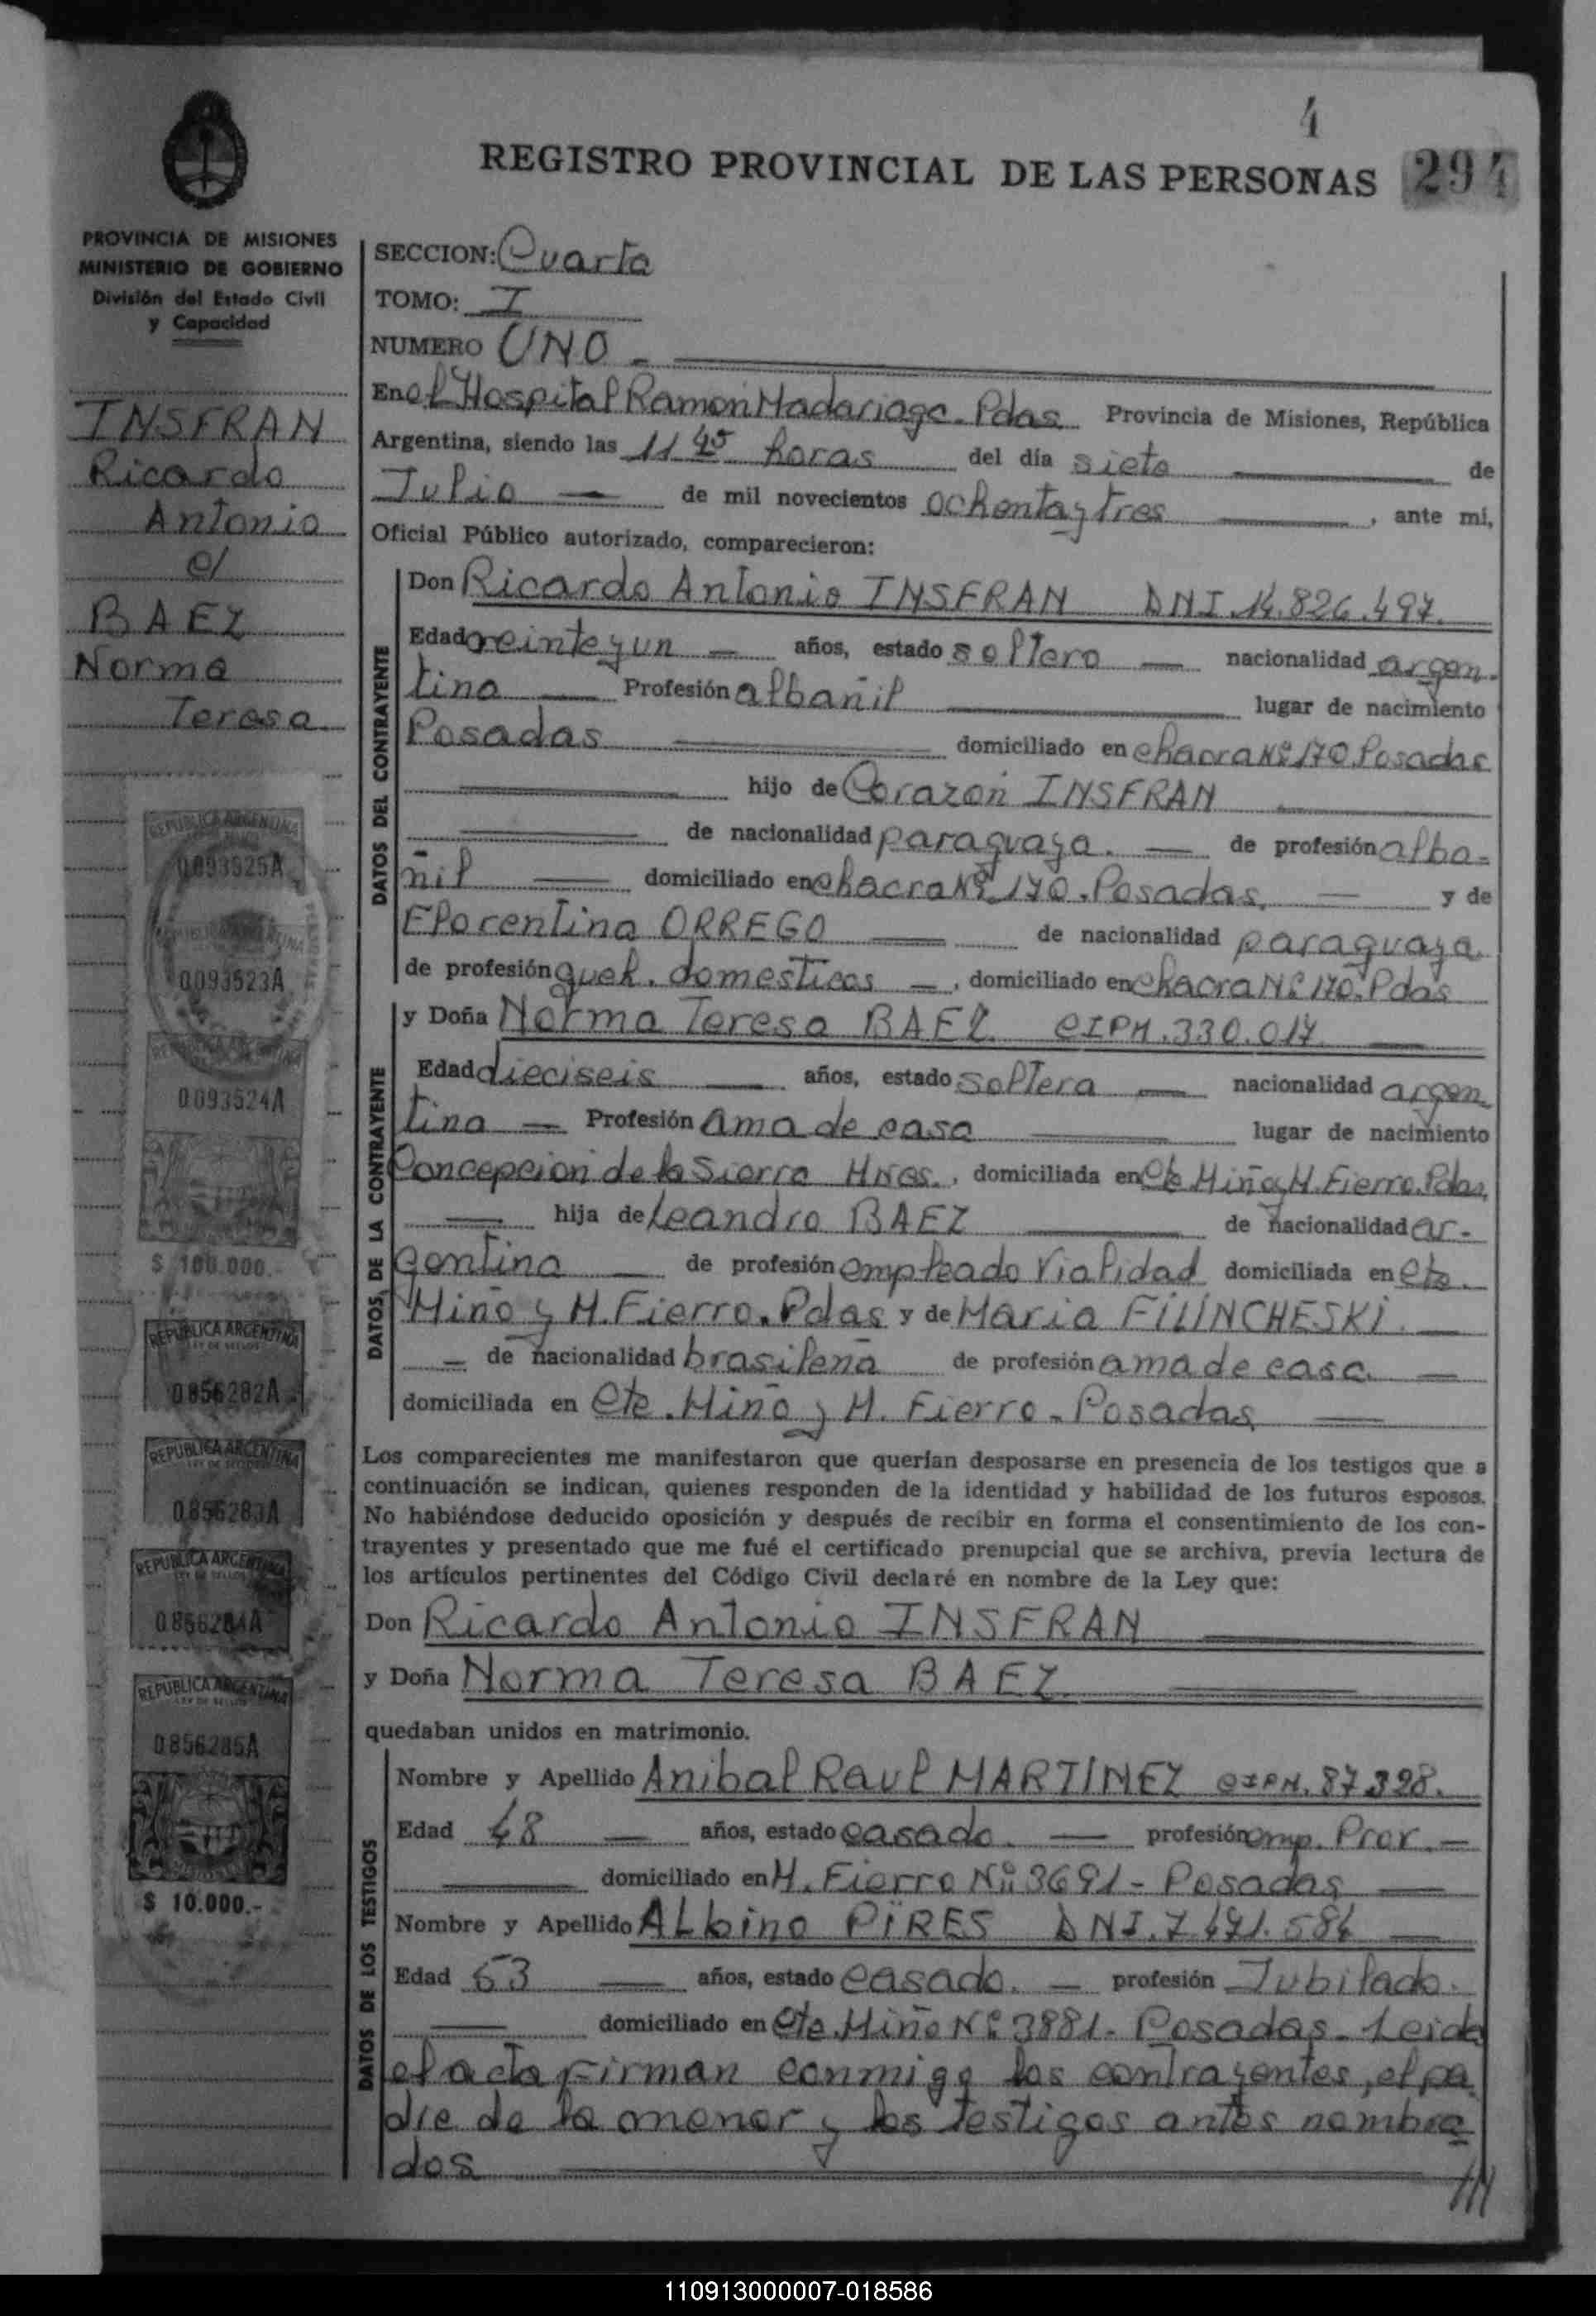 4
REGISTRO PROVINCIAL DE LAS PERSONAS 294
PROVINCIA DE MISIONES
MINISTERIO DE GOBIERNO
División del Estado Civil
y Capacidad
INSFRAN
Ricardo
Antonio
c/
BAEZ
Norma
Teresa
REPUBLICA ARGENTINA
0093525A
0093523A
0093524A
$ 100.000.-
REPUBLICA ARGENTINA
LEY DE SELLOS
0856282A
REPUBLICA ARGENTINA
LEY DE SELLOS
0856283A
REPUBLICA ARGENTINA
LEY DE SELLOS
0856284A
REPUBLICA ARGENTINA
LEY DE SELLOS
0856285A
$ 10.000.-
SECCION: Cuarta
TOMO: I
NUMERO UNO -
En el Hospital Ramon Madariaga-Pdas. Provincia de Misiones, República
Argentina, siendo las 11 45 horas del día siete de
Julio de mil novecientos ochenta y tres , ante mí,
Oficial Público autorizado, comparecieron:
DATOS DEL CONTRAYENTE
Don Ricardo Antonio INSFRAN DNI.14.826.497.
Edad veinte y un años, estado soltero nacionalidad argen-
tina Profesión albañil lugar de nacimiento
Posadas domiciliado en chacra Nº 170.Posadas
hijo de Corazón INSFRAN
de nacionalidad paraguaya. de profesión alba-
ñil domiciliado en chacra Nº.170.Posadas. y de
Florentina ORREGO de nacionalidad paraguaya.
de profesión queh. domesticos , domiciliado en chacra Nº 170.Pdas
DATOS DE LA CONTRAYENTE
y Doña Norma Teresa BAEZ CIPM.330.017
Edad dieciseis años, estado soltera nacionalidad argen-
tina Profesión ama de casa lugar de nacimiento
Concepcion de la Sierra Mnes. , domiciliada en Cte Miño y M.Fierro.Pdas.
hija de Leandro BAEZ de nacionalidad ar-
gentina de profesión empleado Vialidad domiciliada en Cte.
Miño y M.Fierro.Pdas y de Maria FILINCHESKI.
de nacionalidad brasileña de profesión ama de casa.
domiciliada en Cte.Miño y M. Fierro-Posadas
Los comparecientes me manifestaron que querían desposarse en presencia de los testigos que a
continuación se indican, quienes responden de la identidad y habilidad de los futuros esposos.
No habiéndose deducido oposición y después de recibir en forma el consentimiento de los con-
trayentes y presentado que me fué el certificado prenupcial que se archiva, previa lectura de
los artículos pertinentes del Código Civil declaré en nombre de la Ley que:
Don Ricardo Antonio INSFRAN
y Doña Norma Teresa BAEZ
quedaban unidos en matrimonio.
DATOS DE LOS TESTIGOS
Nombre y Apellido Anibal Raul MARTINEZ CIPM.87.398.
Edad 48 años, estado casado. profesión emp. Prov.
domiciliado en M. Fierro Nº 3691-Posadas
Nombre y Apellido ALbino PIRES DNI.7.471.584
Edad 53 años, estado casado. profesión Jubilado.
domiciliado en Cte.Miño Nº 3881-Posadas-Leida
el acta Firman conmigo los contrayentes, el pa
dre de la menor y los testigos antes nombra
dos
110913000007-018586